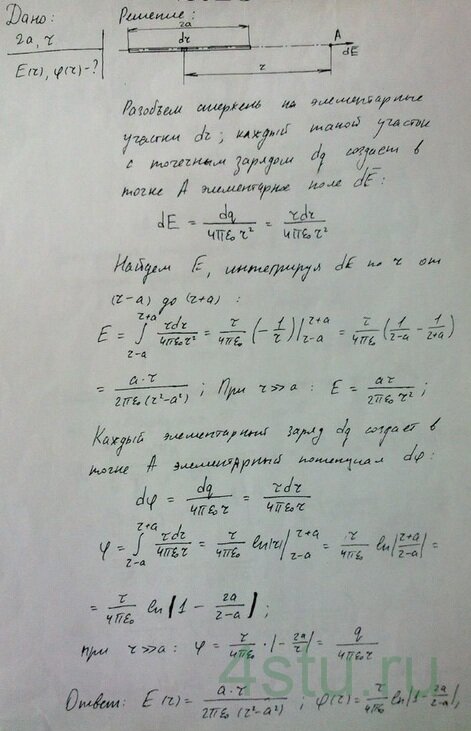 Дано:
2a, τ
E(r), φ(r) - ?
Решение:
2a
dr
A
dE
r
Разобьем стержень на элементарные
участки dr; каждый такой участок
с точечным зарядом dq создает в
точке A элементарное поле dE:
dE = dq/4πε₀r² = τdr/4πε₀r²
Найдем E, интегрируя dE по r от
(r-a) до (r+a) :
E = ∫_{r-a}^{r+a} τdr/4πε₀r² = τ/4πε₀ (-1/r)|_{r-a}^{r+a} = τ/4πε₀ (1/r-a - 1/r+a)
= a·τ/2πε₀(r²-a²) ; При r>>a : E = aτ/2πε₀r² ;
Каждый элементарный заряд dq создает в
точке A элементарный потенциал dφ:
dφ = dq/4πε₀r = τdr/4πε₀r
φ = ∫_{r-a}^{r+a} τdr/4πε₀r = τ/4πε₀ ln|r||_{r-a}^{r+a} = τ/4πε₀ ln|r+a/r-a| =
= τ/4πε₀ ln|1 - 2a/r-a| ;
при r>>a: φ = τ/4πε₀ · |-2a/r| = q/4πε₀r
4stu.ru
Ответ: E(r) = a·τ/2πε₀(r²-a²) ; φ(r) = τ/4πε₀ ln|1-2a/r-a|,